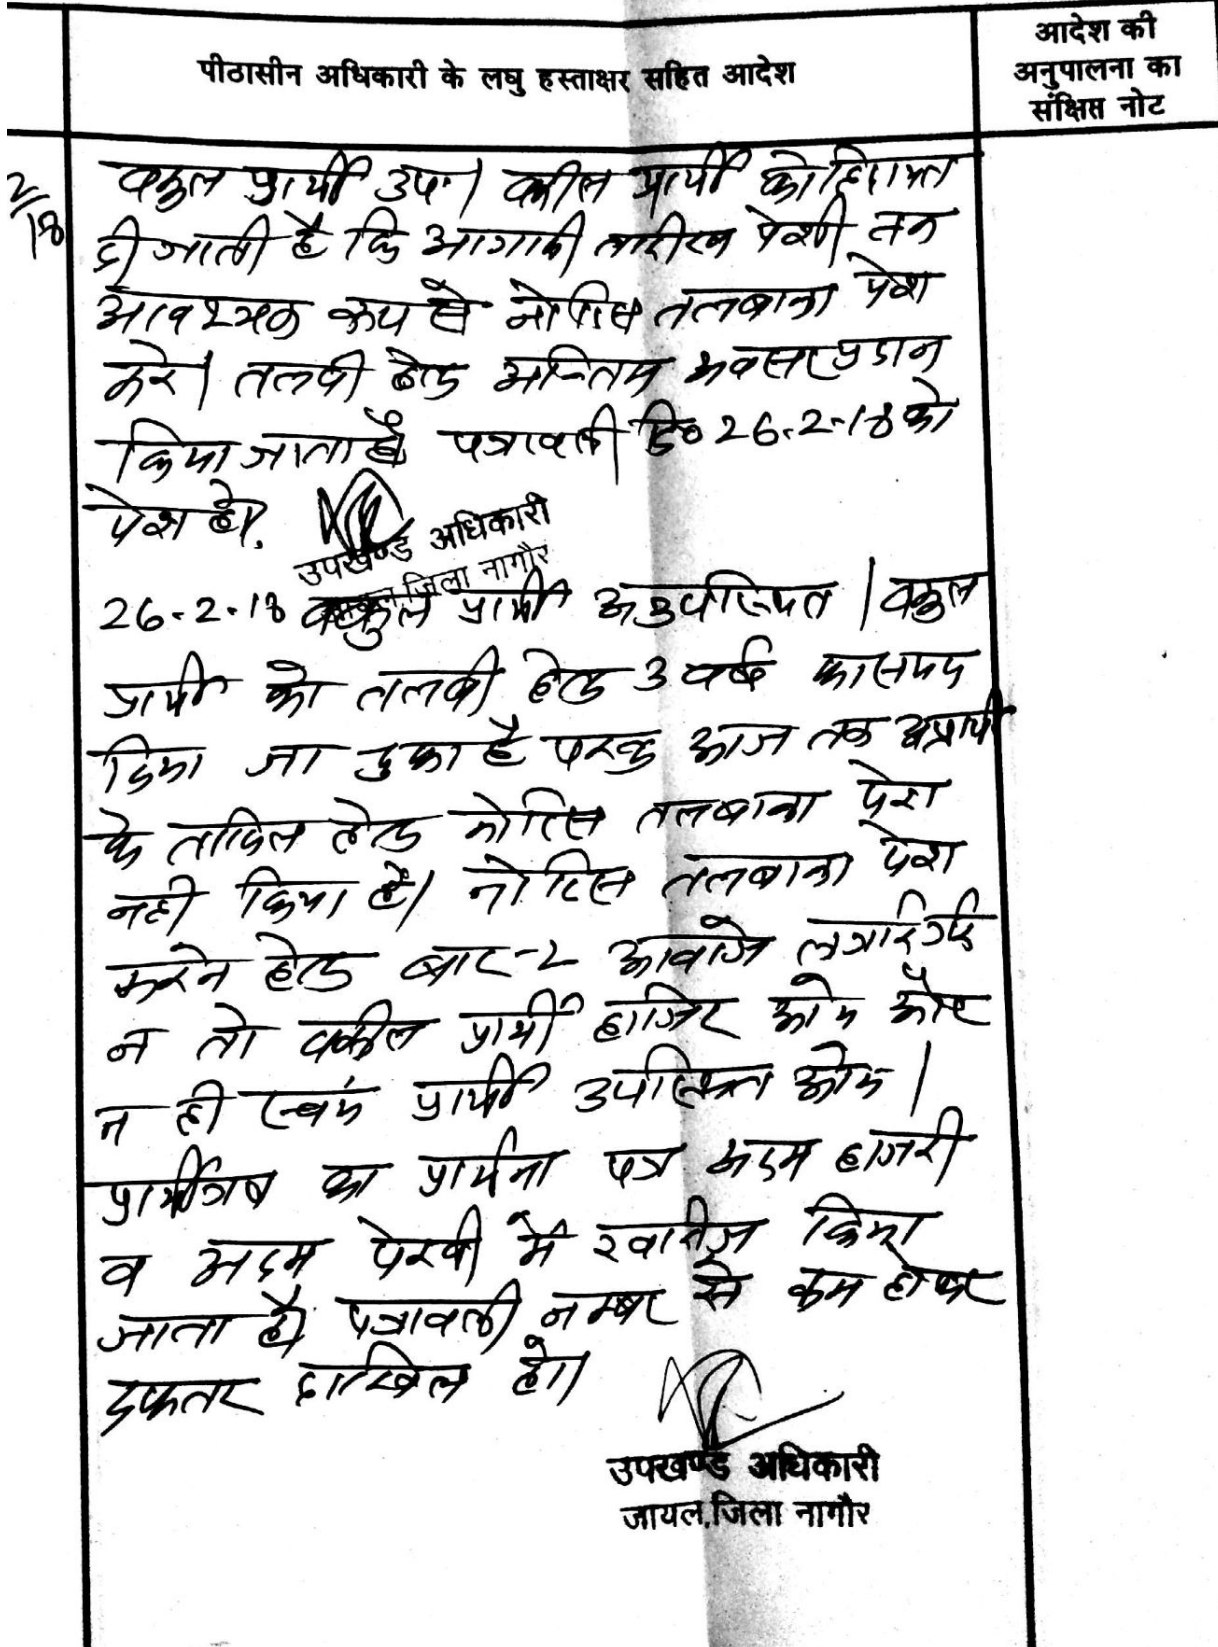 पीठासीन अधिकारी के लघु हस्ताक्षर सहित आदेश
आदेश की
अनुपालना का
संक्षिप्त नोट
2/18
वकुल प्रार्थी उप.। वकील प्रार्थी को हिदायत
दी जाती है कि आगामी तारीख पेशी तक
आवश्यक रूप से नोटिस तलबाना पेश
करे। तलबी हेतु अन्तिम अवसर प्रदान
किया जाता है पत्रावली दि० 26.2.18 को
पेश हो।
उपखण्ड अधिकारी
जिला नागौर
26.2.18 वकुल प्रार्थी अनुपस्थित। वकुल
प्रार्थी को तलबी हेतु 3 वर्ष का समय
दिया जा चुका है परन्तु आज तक अप्रार्थी
के तामिल हेतु नोटिस तलबाना पेश
नही किया है। नोटिस तलबाना पेश
करने हेतु बार-2 आवाजे लगाई गई
न तो वकील प्रार्थी हाजिर आये और
न ही स्वयं प्रार्थी उपस्थित आये।
प्रार्थीगण का प्रार्थना पत्र अदम हाजरी
व अदम पेरवी में खारीज किया
जाता है। पत्रावली नम्बर से कम होकर
दफतर दाखिल हो।
उपखण्ड अधिकारी
जायल, जिला नागौर